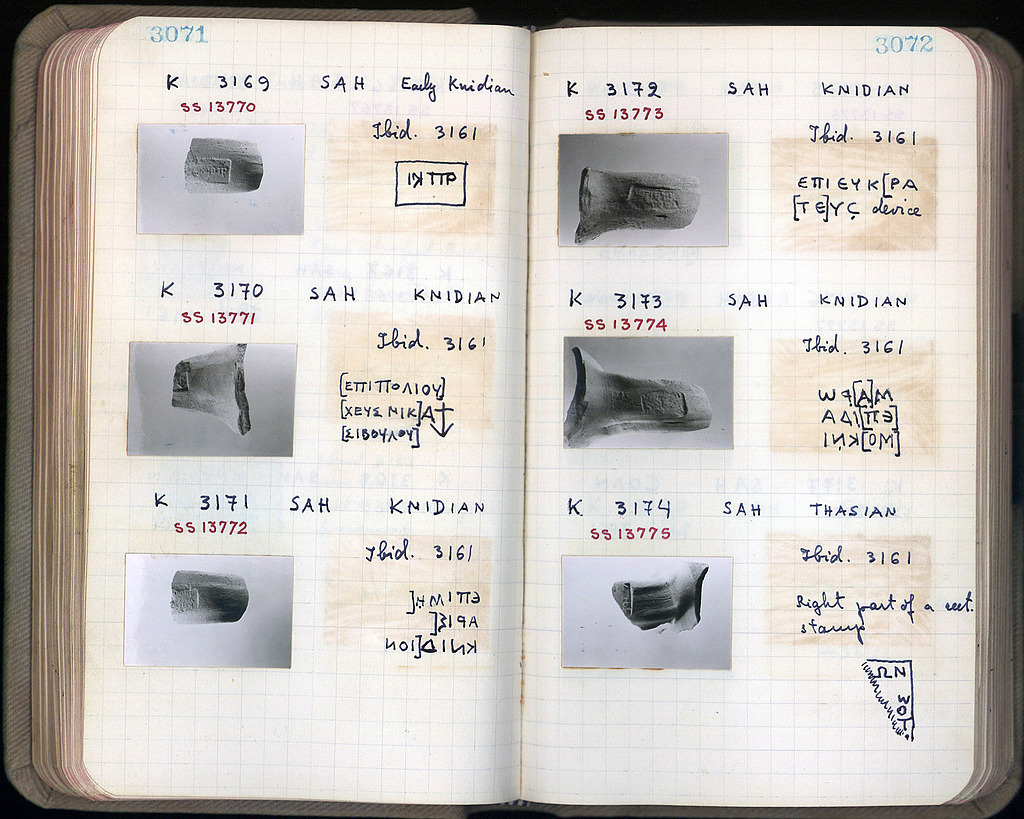 3071
K 3169 SAH Early Knidian
SS 13770
Ibid. 3161
K 3170 SAH KNIDIAN
SS 13771
Ibid. 3161
[ΕΠΙΠΟΛΙΟΥ]
[ΧΕΥΣ ΝΙΚ]Α
[ΣΙΒΟΥΛΟΥ]
K 3171 SAH KNIDIAN
SS 13772
Ibid. 3161
3072
K 3172 SAH KNIDIAN
SS 13773
Ibid. 3161
ΕΠΙ ΕΥΚ[ΡΑ
[ΤΕ]ΥΣ device
K 3173 SAH KNIDIAN
SS 13774
Ibid. 3161
K 3174 SAH THASIAN
SS 13775
Ibid. 3161
Right part of a rect.
stamp